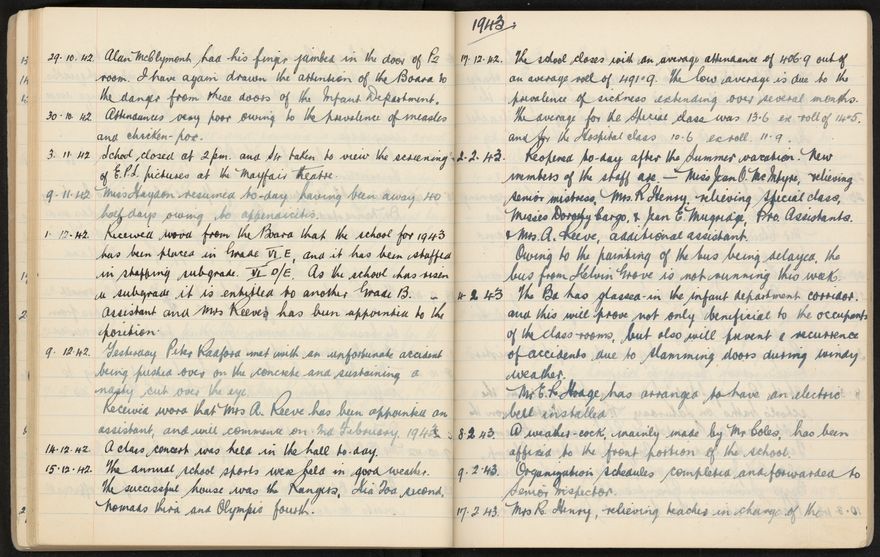 29.10.42. Alan McClymont had his finger jambed in the door of P2
room. I have again drawn the attention of the Board to
the danger from these doors of the Infant Department.
30.10.42 Attendances very poor owing to the prevalence of measles
and chicken-pox.
3.11.42 School closed at 2 p.m. and S4 taken to view the screening
of E.P.S. pictures at the Mayfair Theatre.
9.11.42 Miss Haydon resumed to-day having been away 40
half days owing to appendicitis.
1.12.42. Received word from the Board that the school for 1943
has been placed in Grade VI E, and it has been staffed
in staffing subgrade VI D/E. As the school has risen
a subgrade it is entitled to another Grade B.
Assistant and Mrs Reeves has been appointed to the
position.
9.12.42 Yesterday Peter Radford met with an unfortunate accident
being pushed over on the concrete and sustaining a
nasty cut over the eye.
Received word that Mrs A. Reeve has been appointed an
assistant, and will commence on 2nd February 1943.
14.12.42 A class concert was held in the hall to-day.
15.12.42. The annual school sports were held in good weather.
The successful house was the Rangers, Kia Toa second,
Nomads third and Olympic fourth.
1943
17.12.42. The school closes with an average attendance of 406.9 out of
an average roll of 491.9. The low average is due to the
prevalence of sickness extending over several months.
The average for the special class was 13.6 ex roll of 14.5.
and for the Hospital class 10.6 ex roll 11.9.
2.2.43. Reopened to-day after the Summer vacation. New
members of the staff are - Miss Jean O. McIntyre, relieving
senior mistress, Mrs R. Henry, relieving special class,
Misses Dorothy Cargo, & Jean E Mugridge, Pro. Assistants.
& Mrs. A. Reeve, additional assistant.
Owing to the painting of the bus being delayed, the
bus from Kelvin Grove is not running this week.
4.2.43 The Bd has glassed-in the infant department corridor.
and this will prove not only beneficial to the occupants
of the class-rooms, but also will prevent a recurrence
of accidents due to slamming doors during windy
weather.
Mr E. R. Hodge, has arranged to have an electric
bell installed
8.2.43 A weather-cock, mainly made by Mr Coles, has been
affixed to the front portion of the school.
9.2.43. Organization schedules completed and forwarded to
Senior Inspector.
17.2.43. Mrs R. Henry, relieving teacher in charge of the